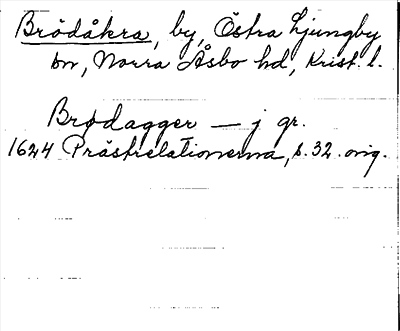 Brödåkra, by, Östra Ljungby
sn, Norra Åsbo hd, Krist. l.
Brødagger — j gr.
1624 Prästrelationerna, s. 32. orig.